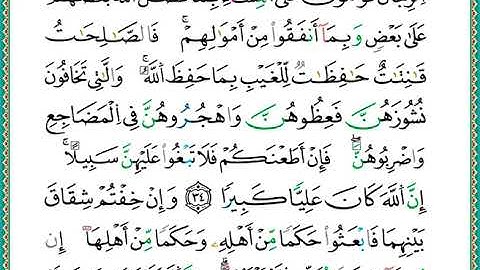 عَلَىٰ بَعْضٍ وَبِمَآ أَنفَقُوا۟ مِنْ أَمْوَٰلِهِمْ ۚ فَٱلصَّـٰلِحَـٰتُ
قَـٰنِتَـٰتٌ حَـٰفِظَـٰتٌ لِّلْغَيْبِ بِمَا حَفِظَ ٱللَّهُ ۚ وَٱلَّـٰتِى تَخَافُونَ
نُشُوزَهُنَّ فَعِظُوهُنَّ وَٱهْجُرُوهُنَّ فِى ٱلْمَضَاجِعِ
وَٱضْرِبُوهُنَّ ۖ فَإِنْ أَطَعْنَكُمْ فَلَا تَبْغُوا۟ عَلَيْهِنَّ سَبِيلًا ۗ
إِنَّ ٱللَّهَ كَانَ عَلِيًّا كَبِيرًا ﴿٣٤﴾ وَإِنْ خِفْتُمْ شِقَاقَ
بَيْنِهِمَا فَٱبْعَثُوا۟ حَكَمًا مِّنْ أَهْلِهِۦ وَحَكَمًا مِّنْ أَهْلِهَآ إِن